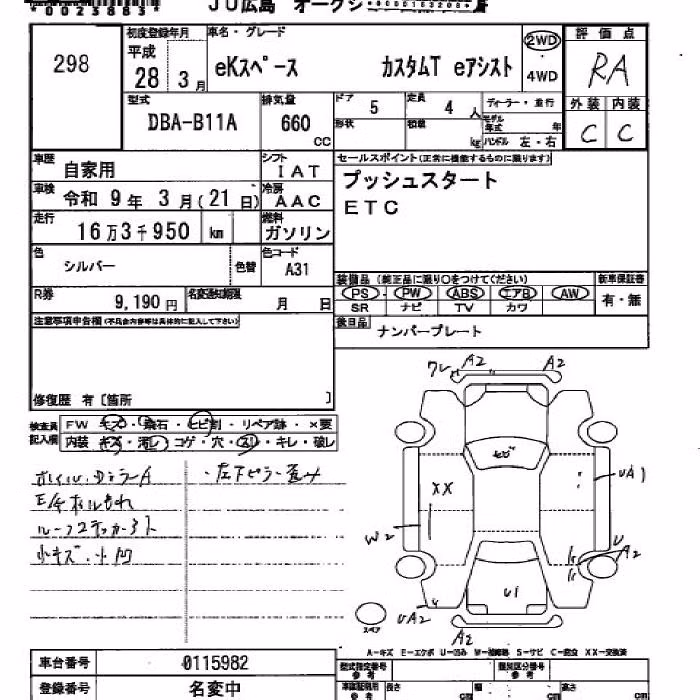 JU広島 オークション
*0023883*
*0000163208*
298
初度登録年月
平成
28 3月
車名・グレード
eKスペース カスタムT eアシスト
2WD
4WD
評価点
RA
外装 内装
C C
型式
DBA-B11A
排気量
660 cc
ドア 5
定員 4 人
ディーラー・並行
形状
積載 kg
モデル年式 年
ハンドル 左・右
車歴 自家用
シフト IAT
セールスポイント(正常に機能するものに限ります)
プッシュスタート
ETC
車検 令和 9年 3月(21日)
冷房 AAC
走行 16万3千950 km
燃料 ガソリン
色 シルバー
色替
色コード A31
装備品(純正品に限り〇をつけてください)
新車保証書
PS PW ABS エアB AW
SR ナビ TV カワ
有・無
R券 9,190円
名変通知期限 月 日
後日品 ナンバープレート
注意事項申告欄(不具合内容等は具体的に記入して下さい)
修復歴 有〔箇所 〕
検査員記入欄
FW キズ・飛石・ヒビ割・リペア跡・×要
内装 キズ・汚し・コゲ・穴・スレ・キレ・破レ
ホイル・DミラーA
・左下ピラー歪み
ルーフステッカー
小キズ・小凹
ワレ A2 A2
XX
W2
UA1
U
A2
U1
UA2
A2
スペア
A-キズ E-エクボ U-凹み W-補修跡 S-サビ C-腐食 XX-交換済
車台番号 0115982
登録番号 名変中
型式指定番号 参考
類別区分番号 参考
車両証明用 参考
長さ cm
幅 cm
高さ cm